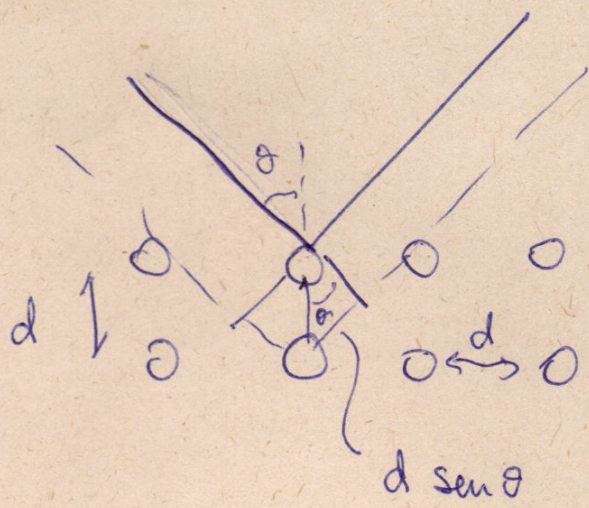 θ
θ
d
d
d sen θ